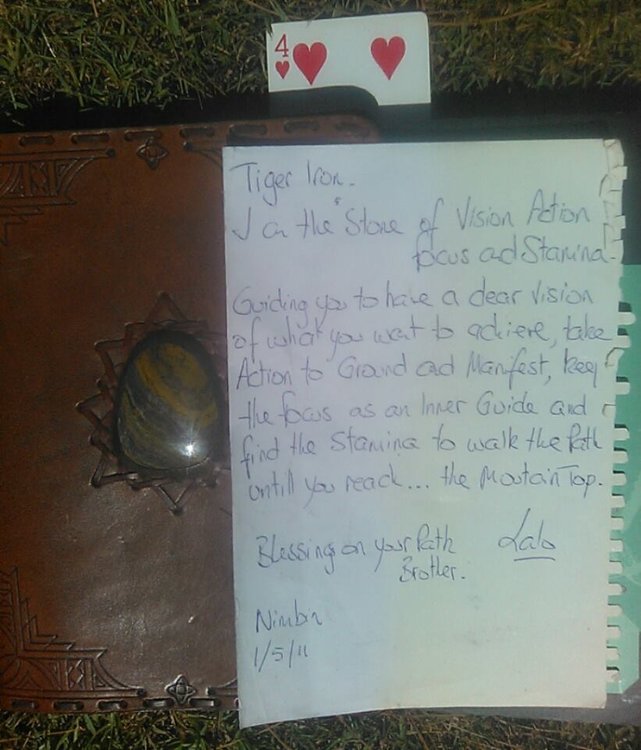 4
Tiger Iron.
I am the "Stone of Vision Action
focus and Stamina.
Guiding you to have a clear vision
of what you want to achieve, take
Action to Ground and Manifest, keep
the focus as an Inner Guide and
find the Stamina to walk the Path
untill you reach... the Moutain Top.
Blessings on your Path Lalo
Brother.
Nimbin
1/5/11